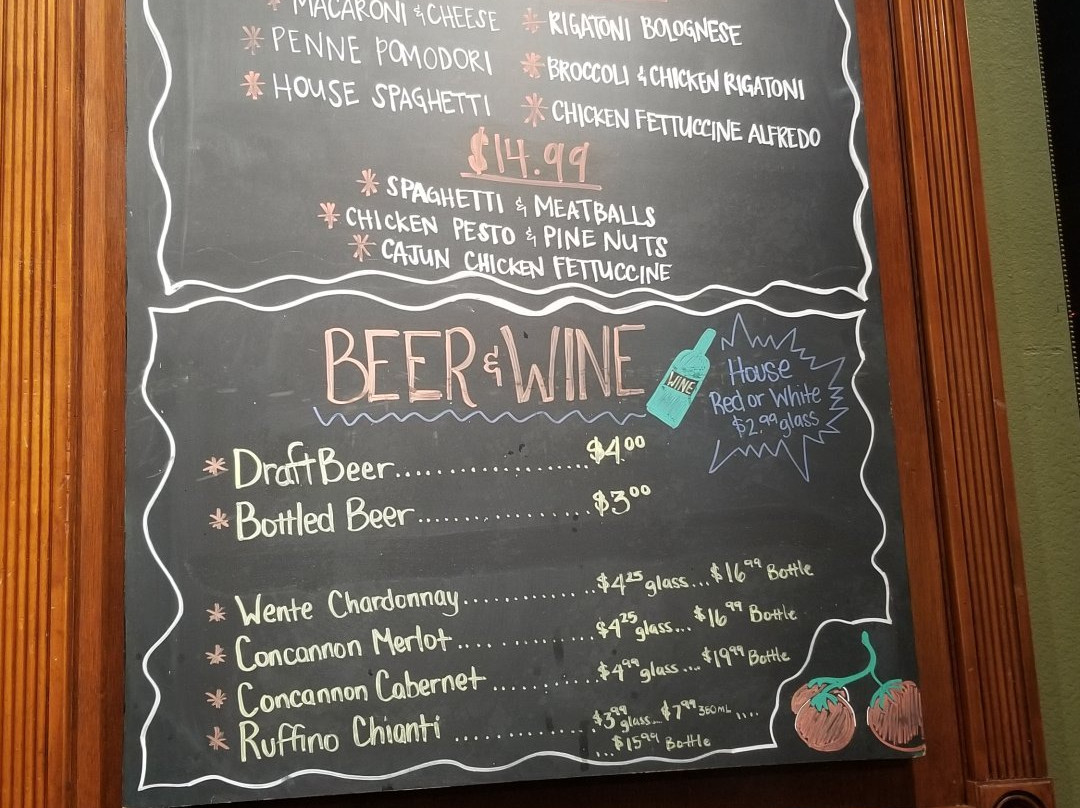 * MACARONI & CHEESE
* PENNE POMODORI
* HOUSE SPAGHETTI
* RIGATONI BOLOGNESE
* BROCCOLI & CHICKEN RIGATONI
* CHICKEN FETTUCCINE ALFREDO
$14.99
* SPAGHETTI & MEATBALLS
* CHICKEN PESTO & PINE NUTS
* CAJUN CHICKEN FETTUCCINE
BEER & WINE
WINE
House
Red or White
$2.99 glass
* Draft Beer.................... $4.00
* Bottled Beer.................. $3.00
* Wente Chardonnay.............. $4.25 glass... $16.99 Bottle
* Concannon Merlot.............. $4.25 glass... $16.99 Bottle
* Concannon Cabernet............ $4.99 glass.... $19.99 Bottle
* Ruffino Chianti ............... $3.99 glass... $7.99 350mL ....
... $15.99 Bottle